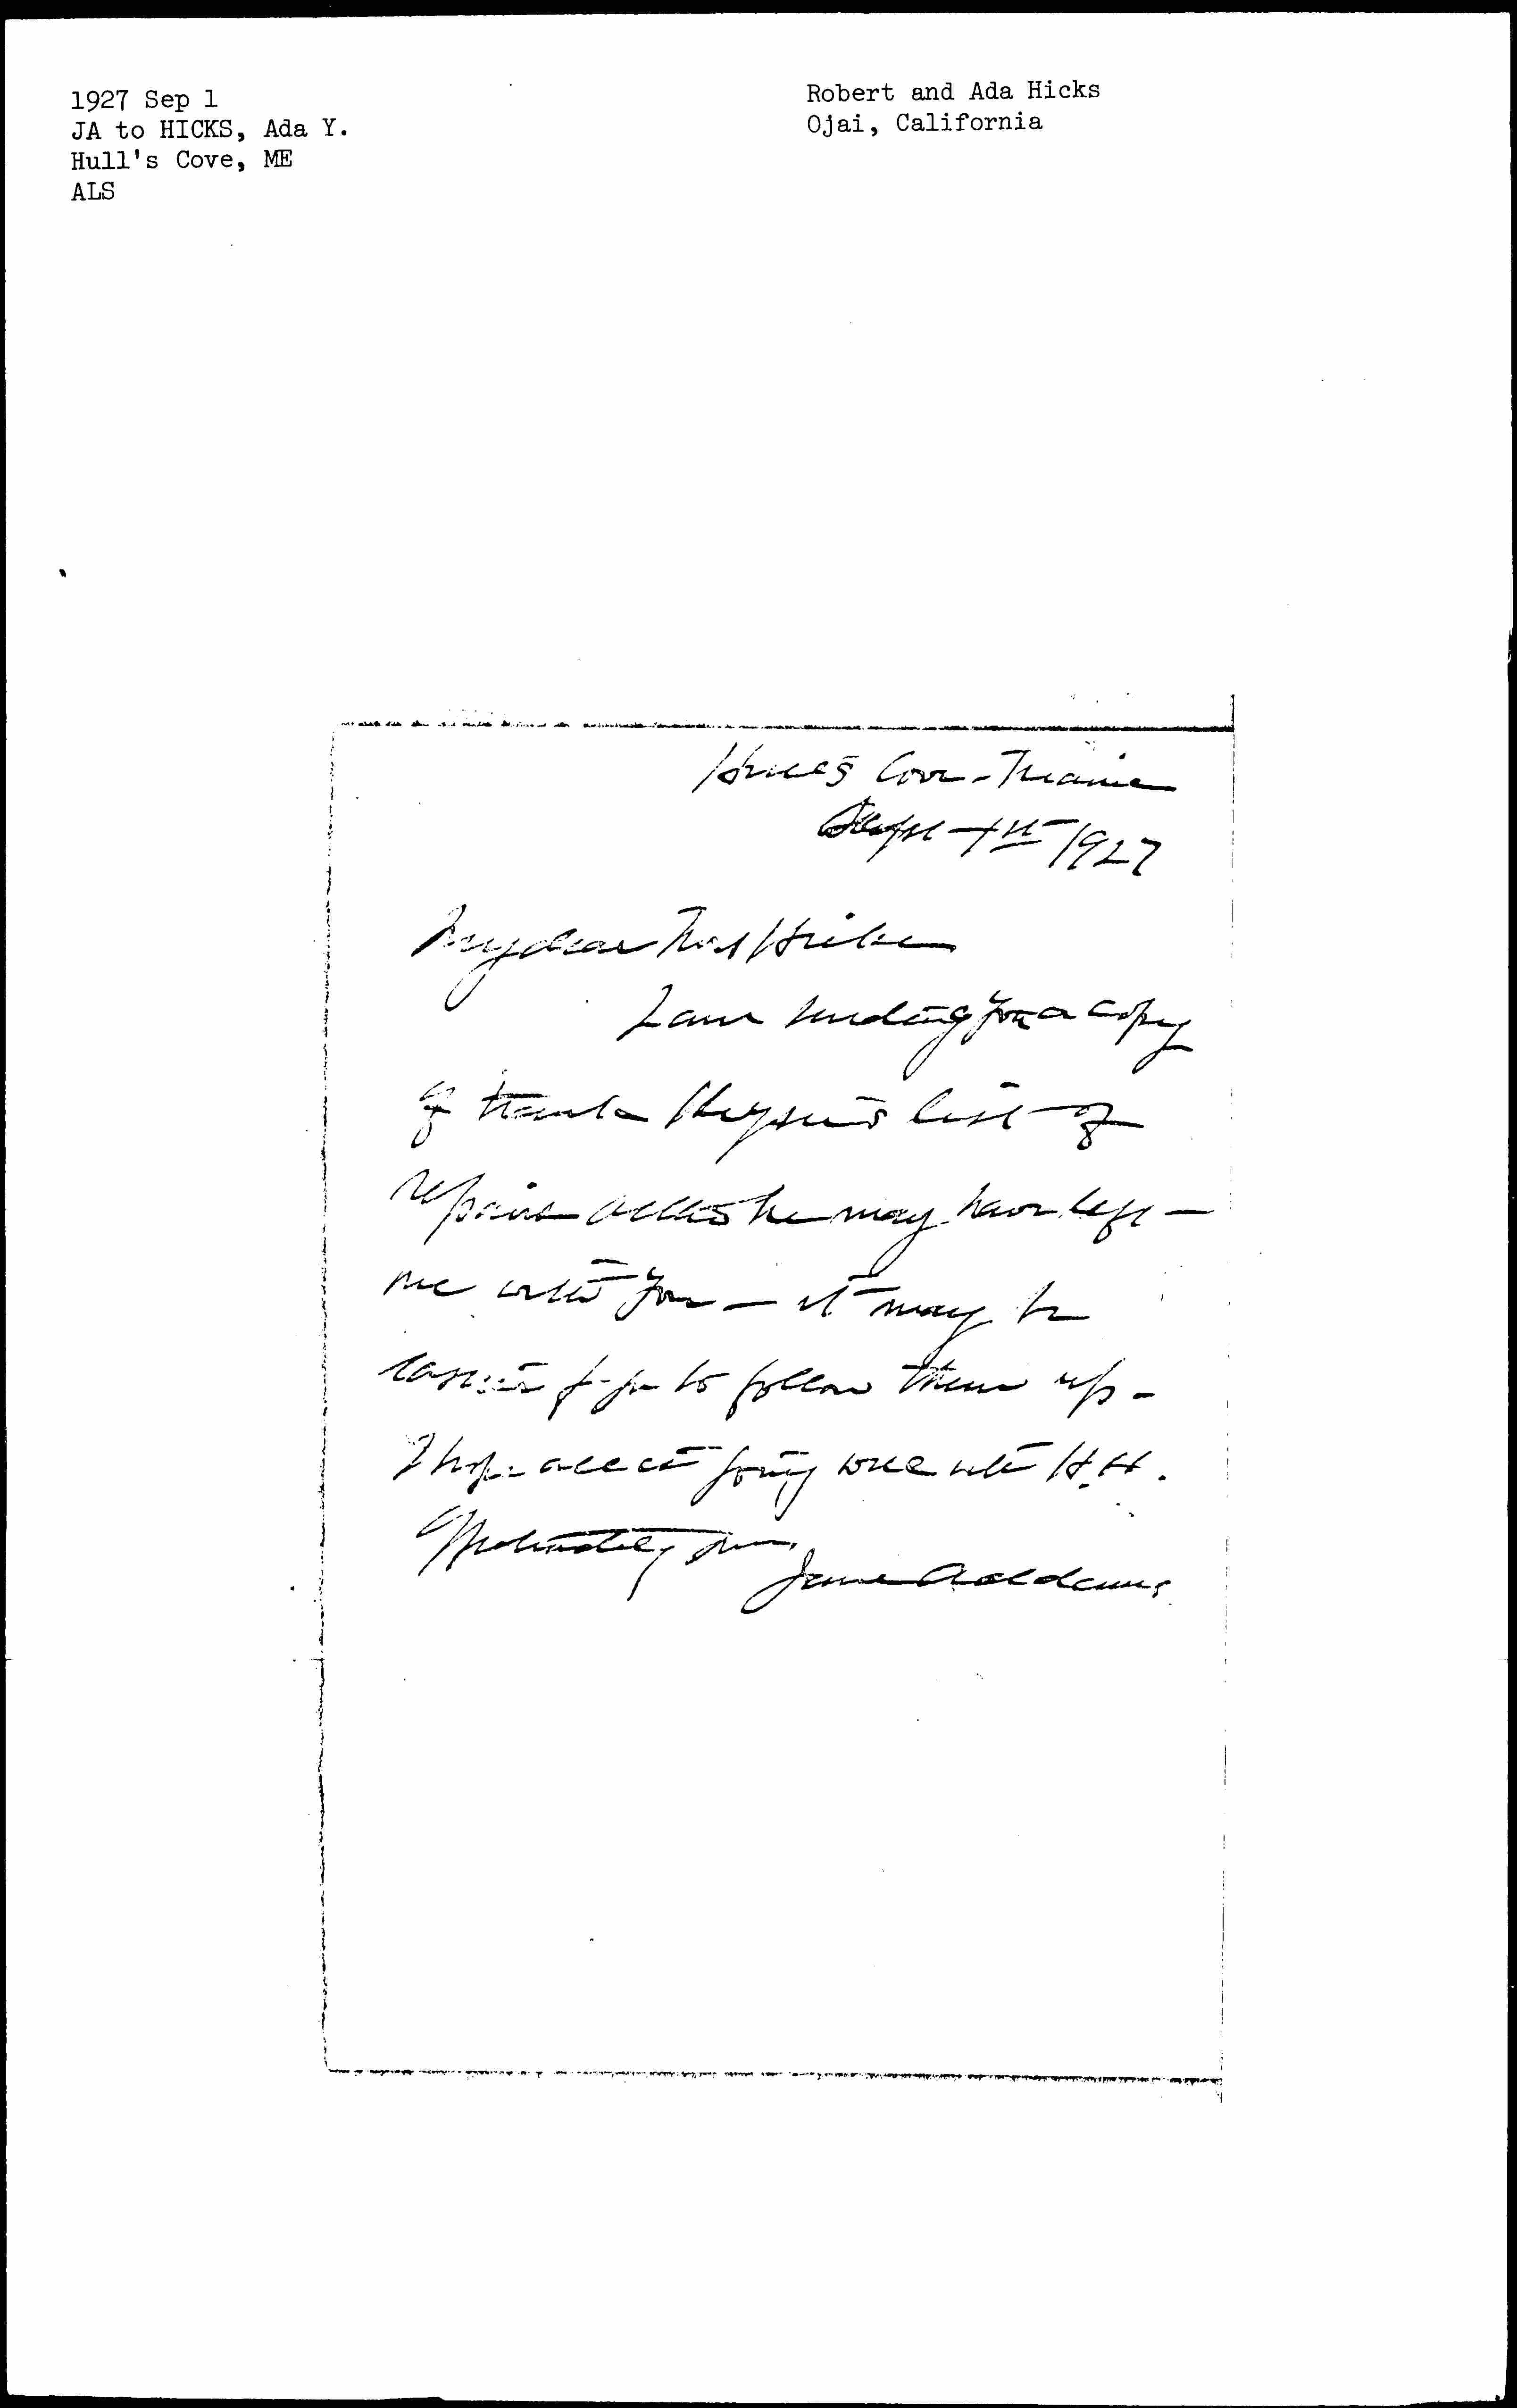 1927 Sep 1
JA to HICKS, Ada Y.
Hull's Cove, ME
ALS
Robert and Ada Hicks
Ojai, California
Hull's Cove - Maine
Sept 1st 1927
My dear Mrs Hicks
I am sending you a copy
of Frank Keyser's list of
repairs altho he may have left
one with you - it may be
easier for you to follow them up -
I hope all is going well with H.H.
yours
Jane Addams